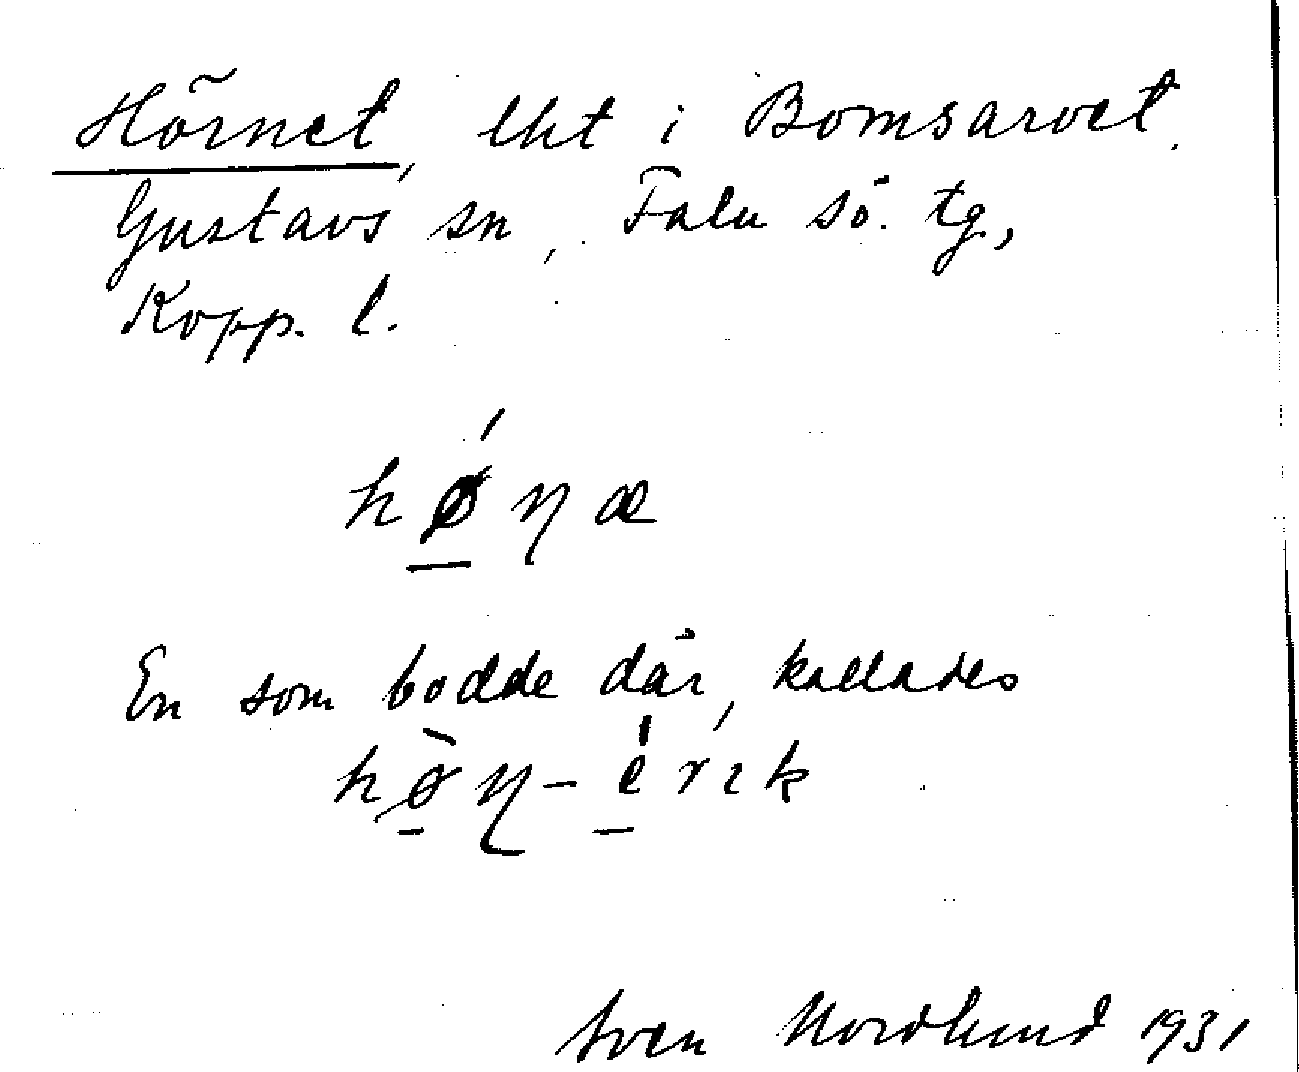 Hörnet, lht i Bomsarvet.
Gustavs sn, Falu sö. tg,
Kopp. l.
hǿŋæ
En som bodde där, kallades
hø̀ŋ-érık
Sven Nordlund 1931